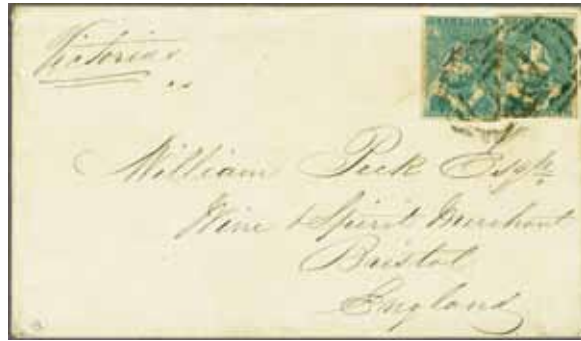 Victoria
William Peek Esqre
Wine & Spirit Merchant
Bristol
England